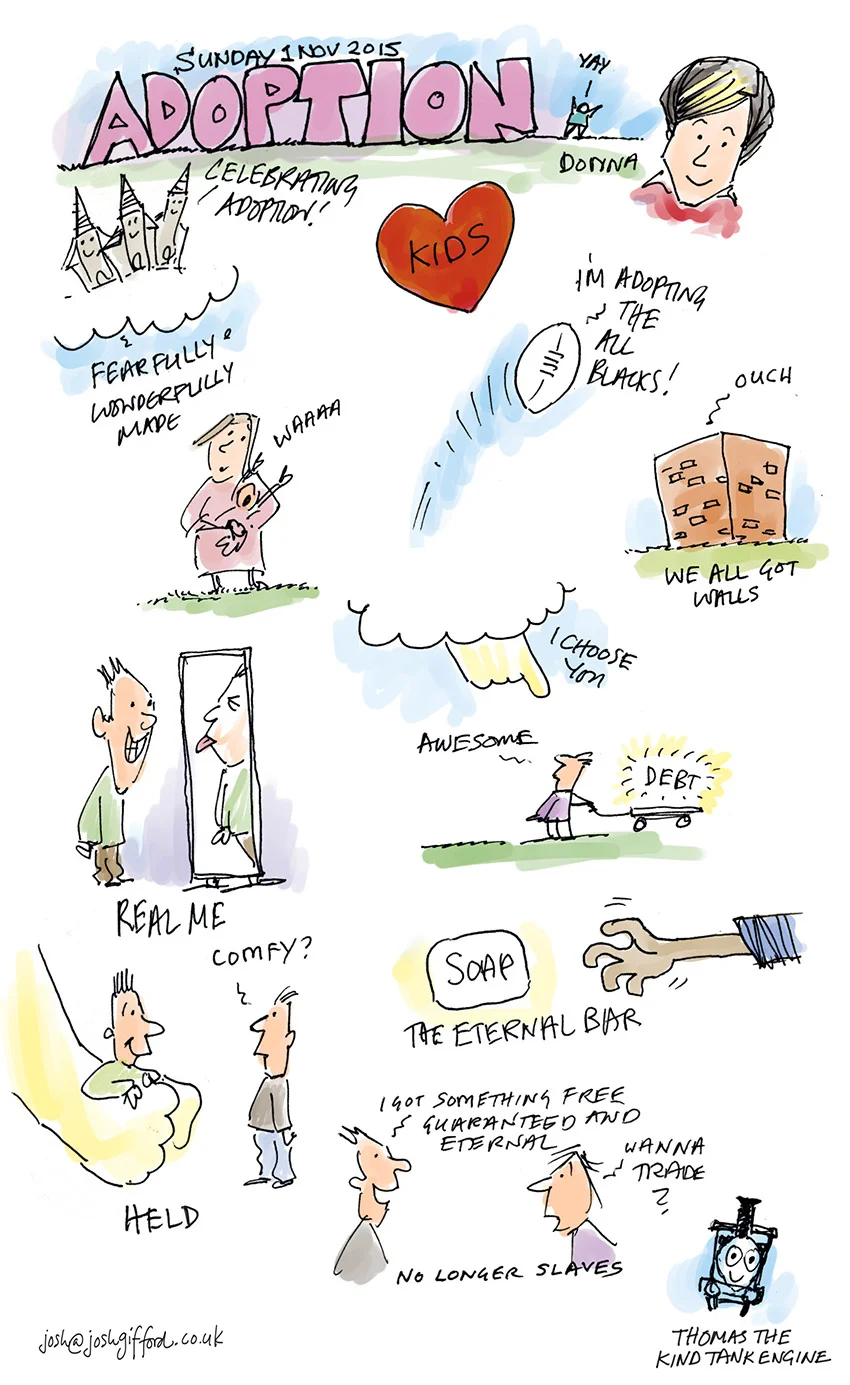 SUNDAY 1 NOV 2015
ADOPTION
YAY
DONNA
CELEBRATING
ADOPTION!
KIDS
I'M ADOPTING
THE
ALL
BLACKS!
FEARFULLY &
WONDERFULLY
MADE
WAAAA
OUCH
WE ALL GOT
WALLS
I CHOOSE
YOU
AWESOME
DEBT
REAL ME
COMFY?
SOAP
THE ETERNAL BAR
HELD
I GOT SOMETHING FREE
GUARANTEED AND
ETERNAL
WANNA
TRADE
?
NO LONGER SLAVES
THOMAS THE
KIND TANK ENGINE
josh@joshgifford.co.uk